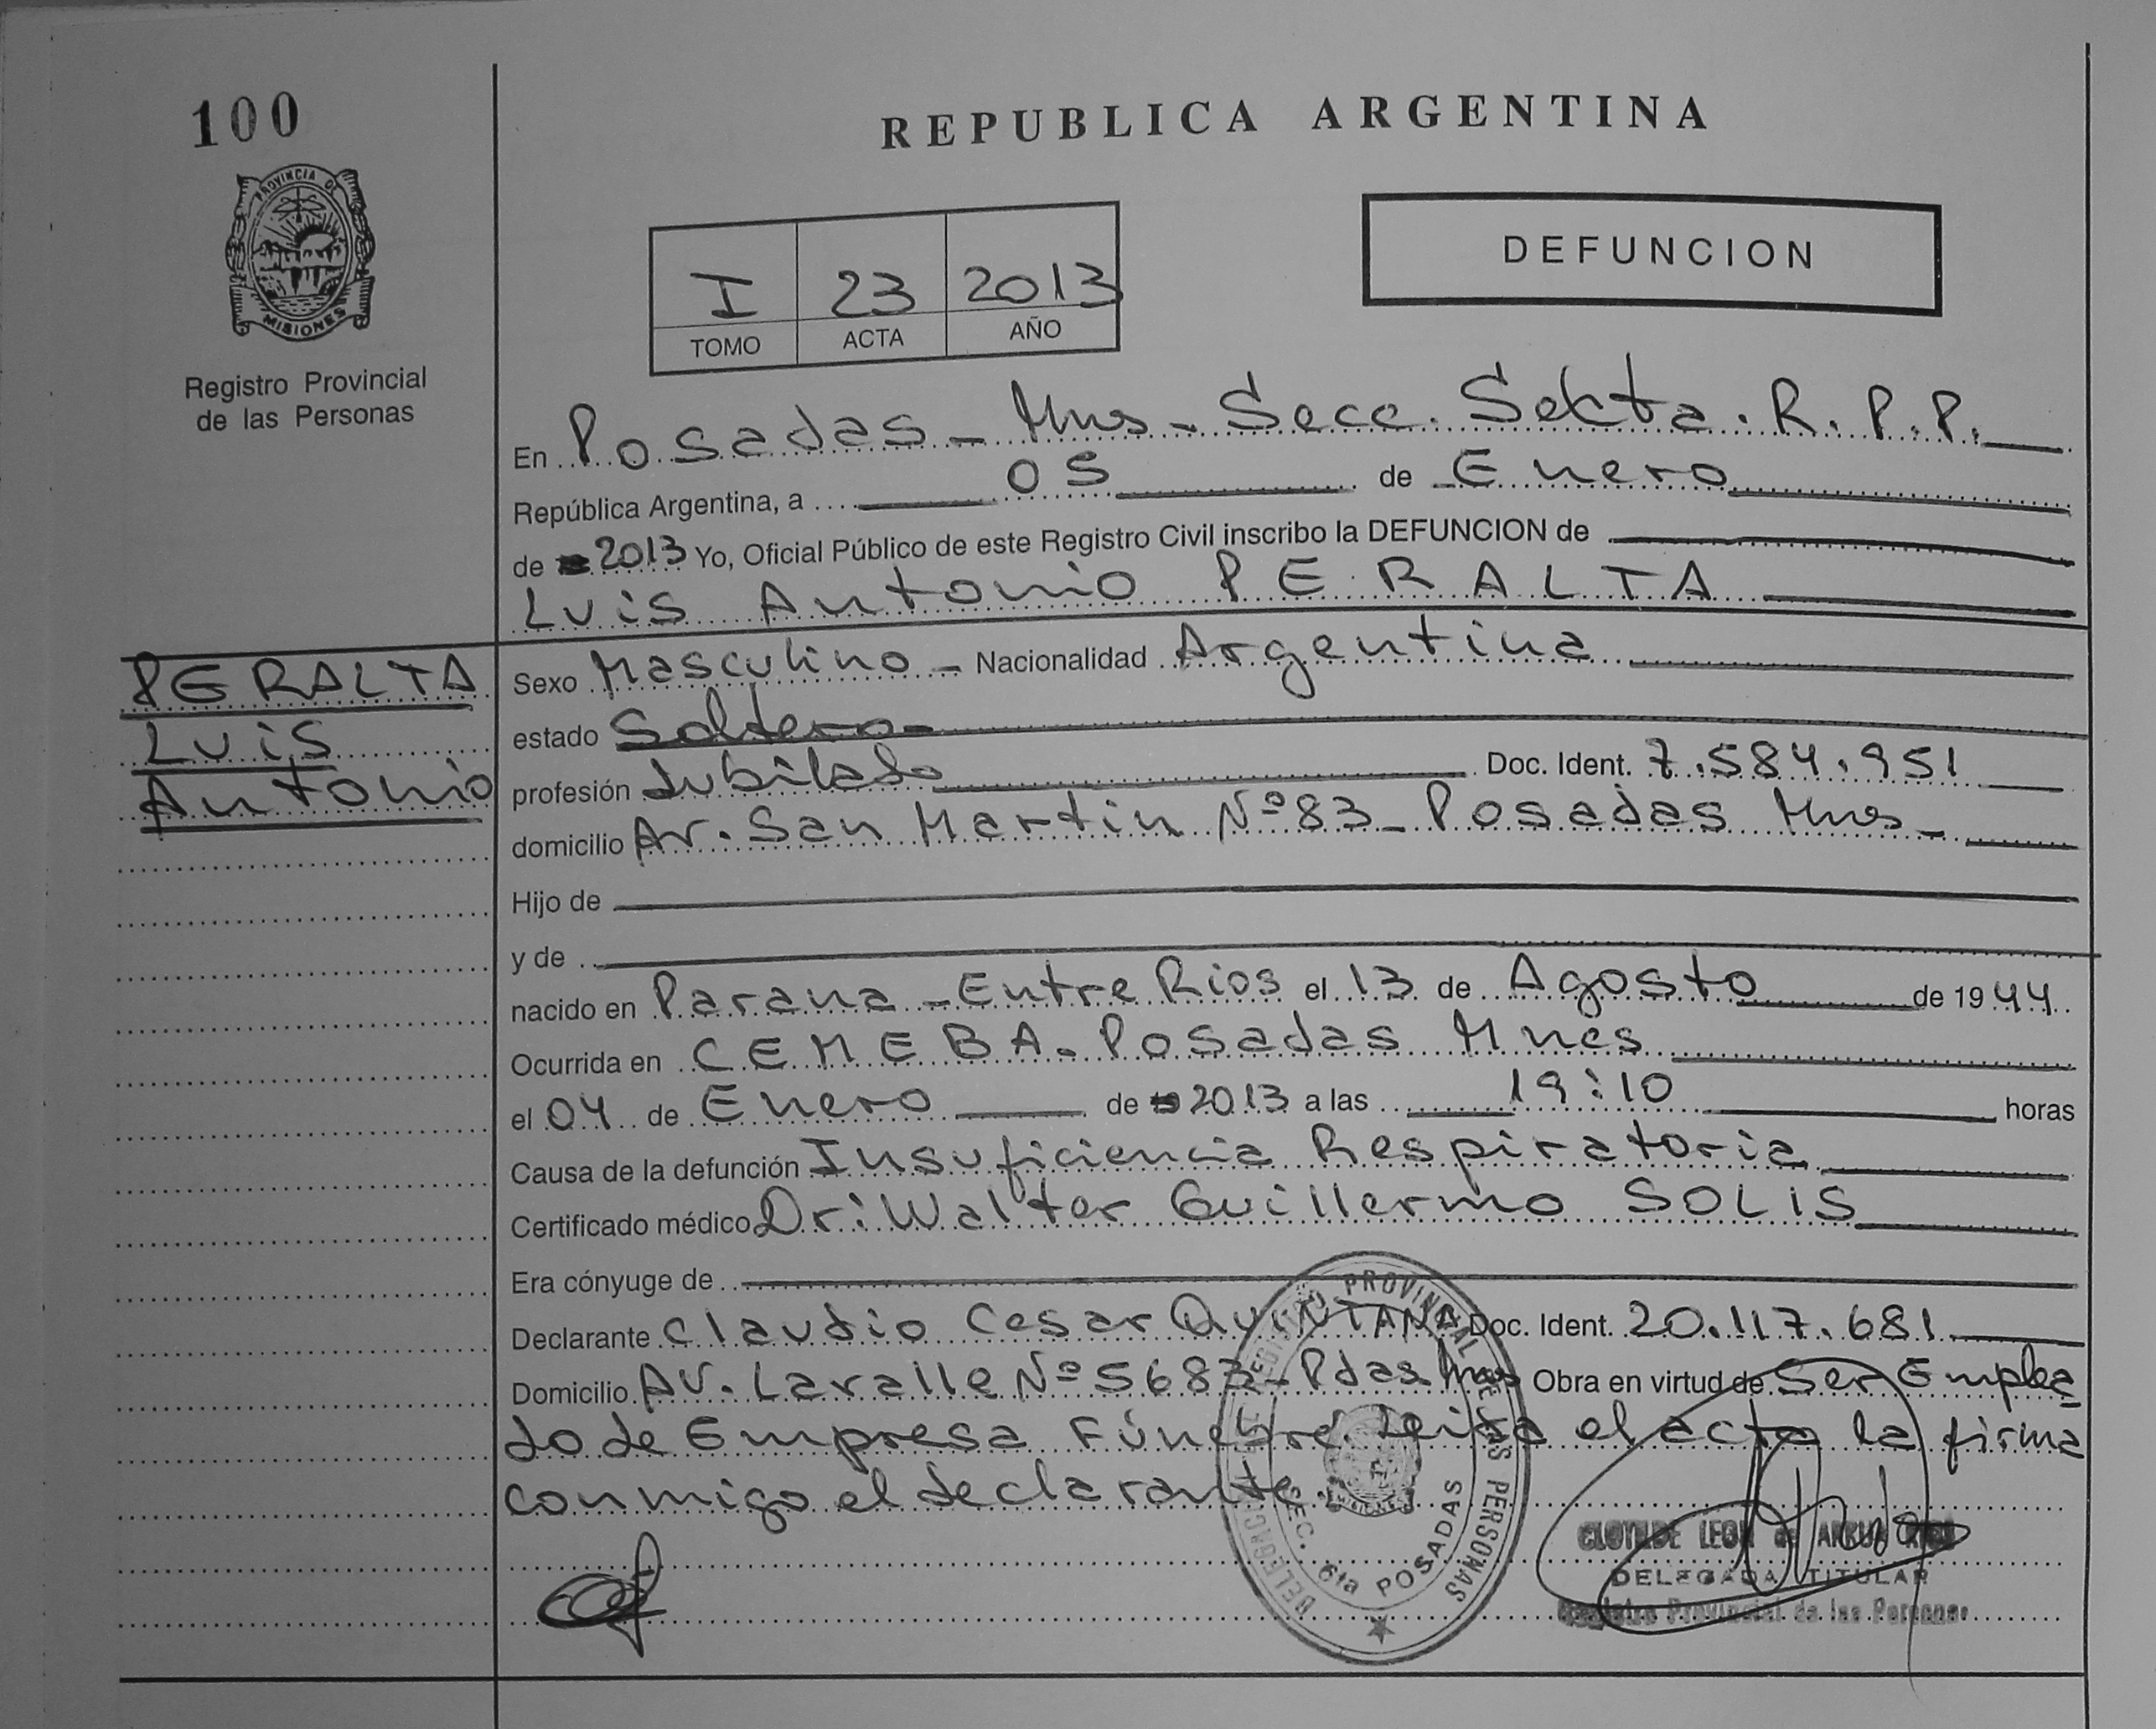 100
REPUBLICA ARGENTINA
PROVINCIA DE
MISIONES
Registro Provincial
de las Personas
DEFUNCION
I 23 2013
TOMO ACTA AÑO
En Posadas - Mns - Secc. Sexta. R. P. P.
República Argentina, a 05 de Enero
de 2013 Yo, Oficial Público de este Registro Civil inscribo la DEFUNCION de
Luis Antonio PERALTA
PERALTA
Luis
Antonio
Sexo Masculino - Nacionalidad Argentina
estado Soltero -
profesión Jubilado Doc. Ident. 7.584.951
domicilio Av. San Martin Nº 83 - Posadas Mnes -
Hijo de
y de
nacido en Parana - Entre Rios el 13 de Agosto de 1944
Ocurrida en CEMEBA - Posadas Mnes
el 04 de Enero de 2013 a las 19:10 horas
Causa de la defunción Insuficiencia Respiratoria
Certificado médico Dr: Walter Guillermo SOLIS
Era cónyuge de
Declarante Claudio Cesar QUINTANA Doc. Ident. 20.117.681
Domicilio AV. Lavalle Nº 5683 - Pdas. Mns Obra en virtud de Ser Emplea
do de Empresa Fúnebre. Leida el acta la firma
conmigo el declarante.
REGISTRO PROVINCIAL DE LAS PERSONAS
DELEGACION
SEC. 6ta POSADAS
CLOTILDE LEON DE
DELEGADA TITULAR
Registro Provincial de las Personas